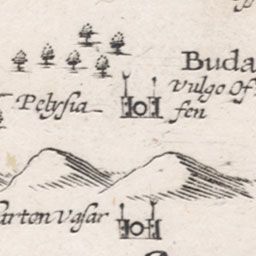 Buda
Vulgo Of
fen
Pelysia
arton vasar